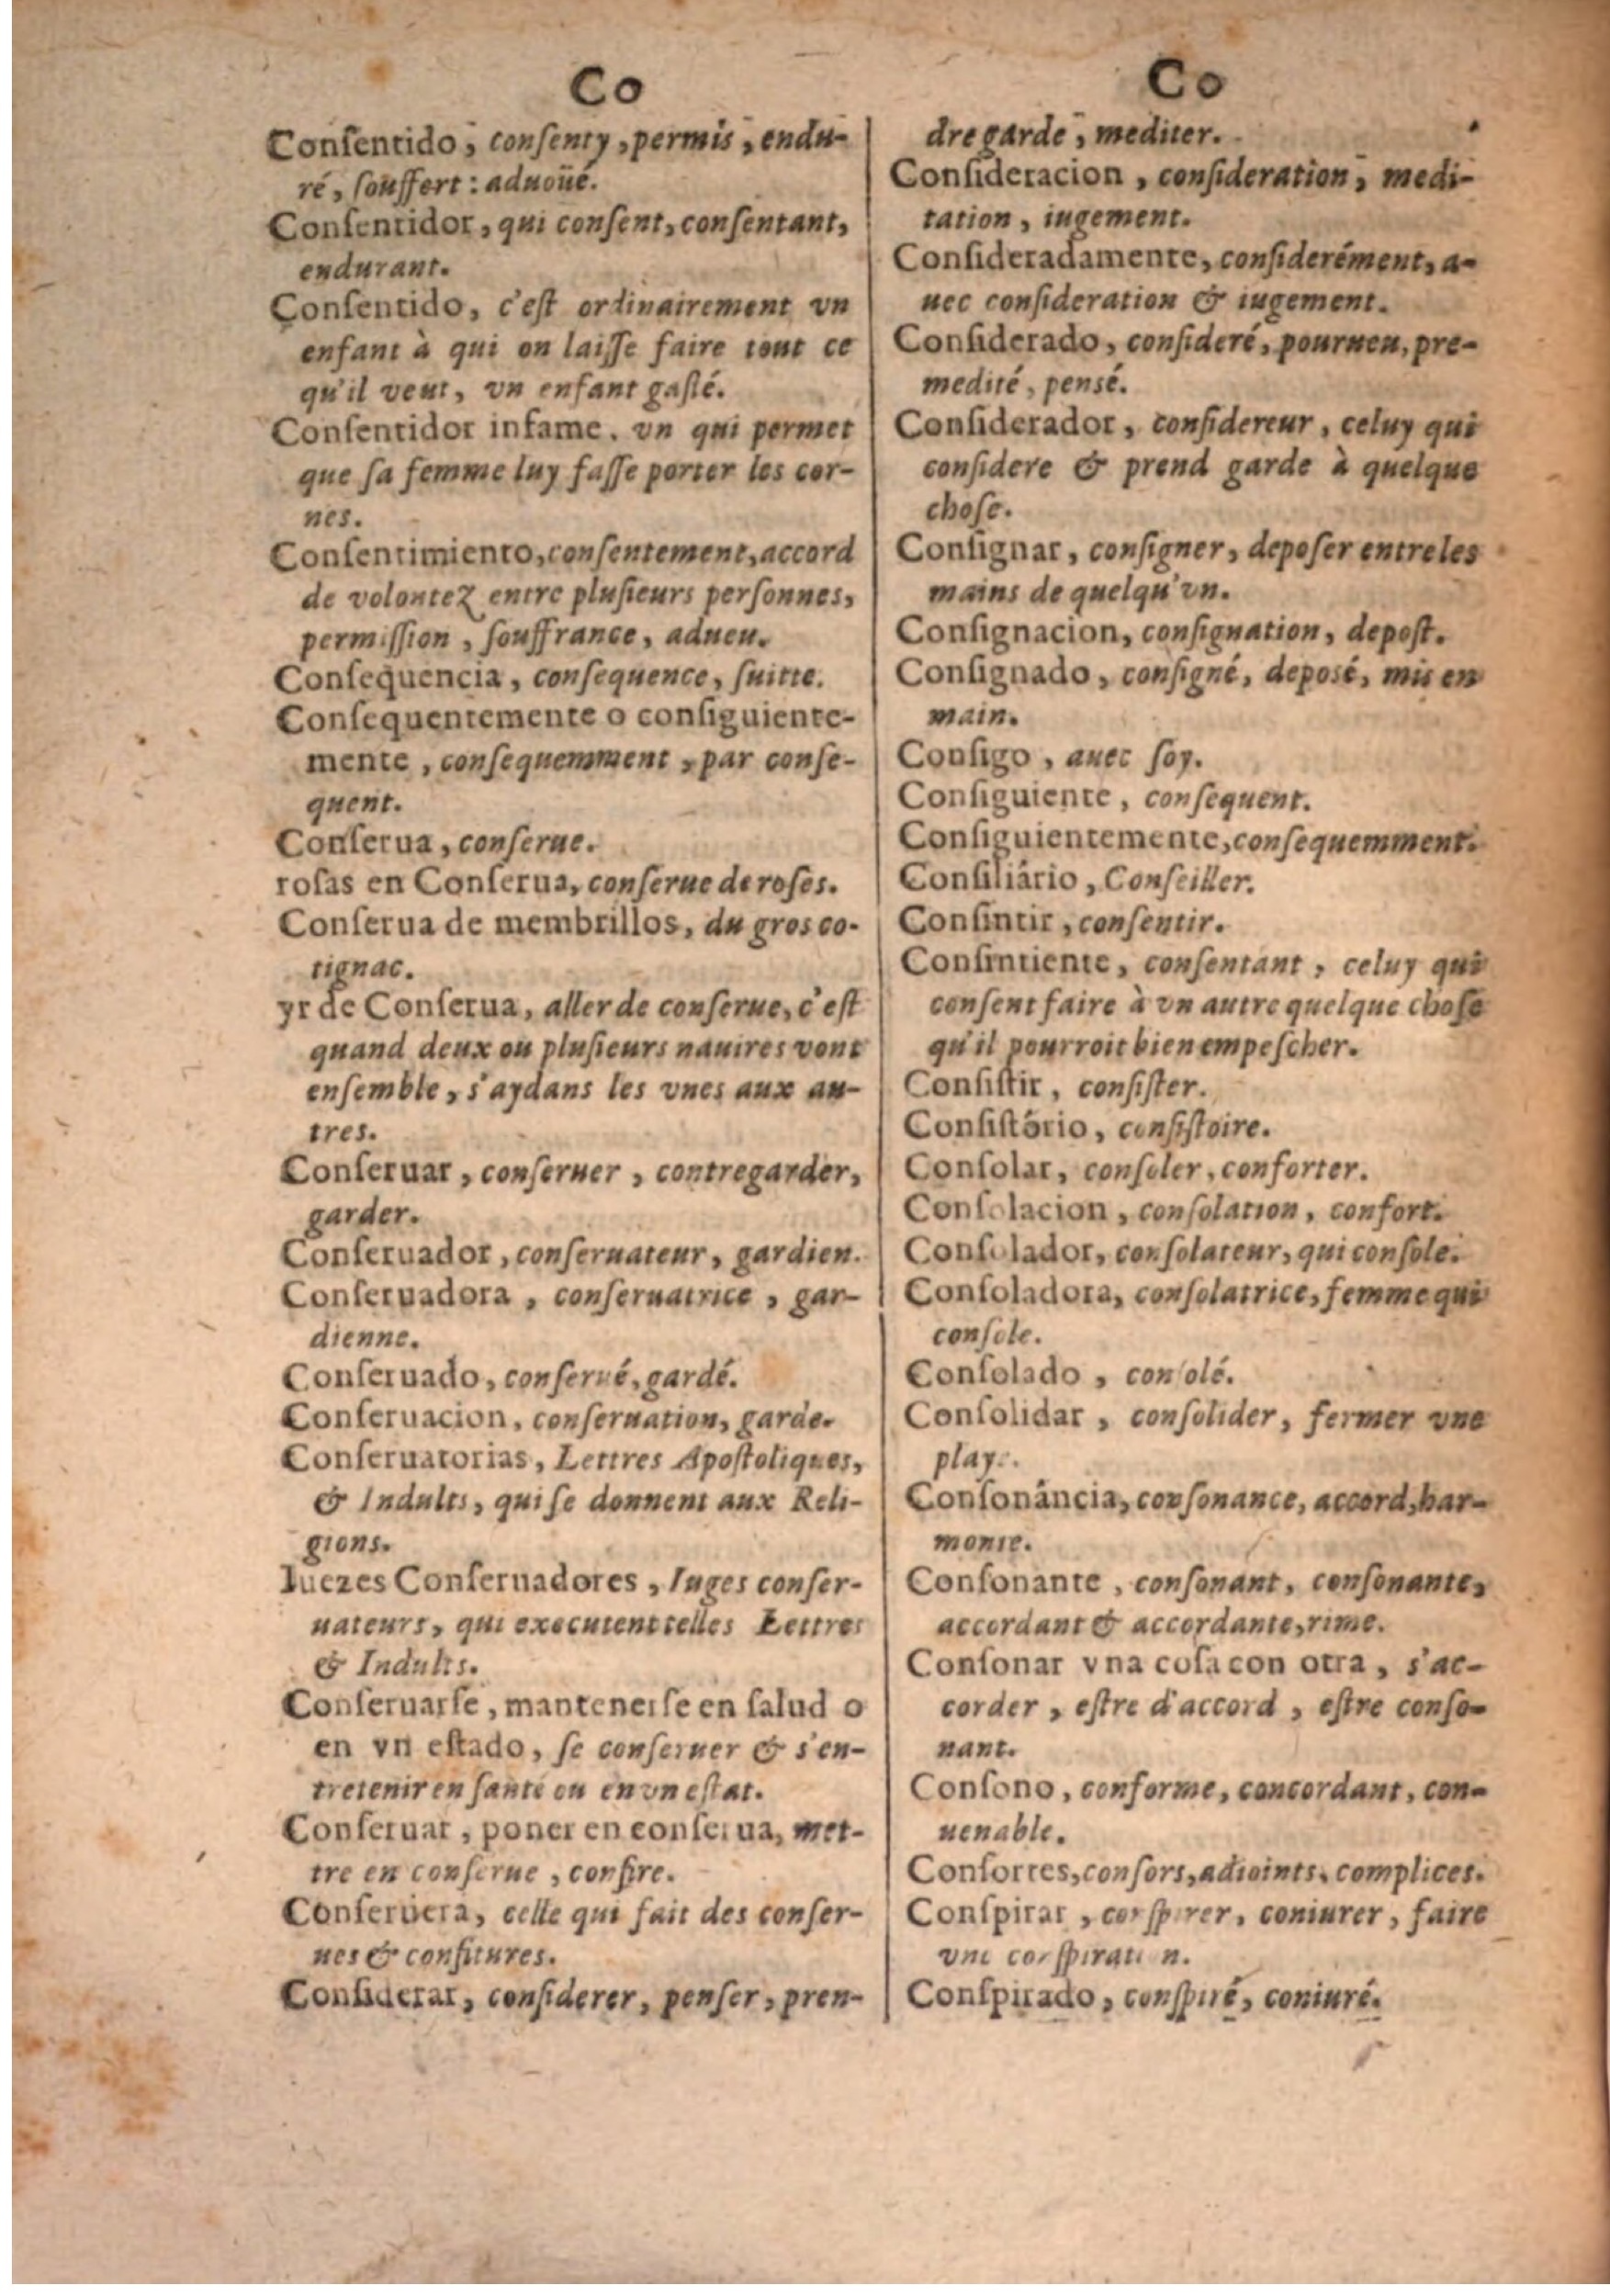 Co
Conſentido, conſenty, permis, endu-
ré, ſouffert: aduoüé.
Conſentidor, qui conſent, conſentant,
endurant.
Conſentido, c'eſt ordinairement vn
enfant à qui on laiſſe faire tout ce
qu'il veut, vn enfant gaſté.
Conſentidor infame, vn qui permet
que ſa femme luy faſſe porter les cor-
nes.
Conſentimiento, conſentement, accord
de volontez entre pluſieurs perſonnes,
permiſſion, ſouffrance, adueu.
Conſequencia, conſequence, ſuitte.
Conſequentemente o conſiguiente-
mente, conſequemment, par conſe-
quent.
Conſerua, conſerue.
roſas en Conſerua, conſerue de roſes.
Conſerua de membrillos, du gros co-
tignac.
yr de Conſerua, aller de conſerue, c'eſt
quand deux ou pluſieurs nauires vont
enſemble, s'aydans les vnes aux au-
tres.
Conſeruar, conſeruer, contregarder,
garder.
Conſeruador, conſeruateur, gardien.
Conſeruadora, conſeruatrice, gar-
dienne.
Conſeruado, conſerué, gardé.
Conſeruacion, conſeruation, garde.
Conſeruatorias, Lettres Apoſtoliques,
& Indults, qui ſe donnent aux Reli-
gions.
Iuezes Conſeruadores, Iuges conſer-
uateurs, qui executent telles Lettres
& Indults.
Conſeruarſe, mantenerſe en ſalud o
en vn eſtado, ſe conſeruer & s'en-
tretenir en ſanté ou en vn eſtat.
Conſeruar, poner en conſerua, met-
tre en conſerue, confire.
Conſeruera, celle qui fait des conſer-
ues & confitures.
Conſiderar, conſiderer, penſer, pren-
Co
dre garde, mediter.
Conſideracion, conſideration, medi-
tation, iugement.
Conſideradamente, conſiderément, a-
uec conſideration & iugement.
Conſiderado, conſideré, pourueu, pre-
medité, pensé.
Conſiderador, conſidereur, celuy qui
conſidere & prend garde à quelque
choſe.
Conſignar, conſigner, depoſer entre les
mains de quelqu'vn.
Conſignacion, conſignation, depoſt.
Conſignado, conſigné, deposé, mis en
main.
Conſigo, auec ſoy.
Conſiguiente, conſequent.
Conſiguientemente, conſequemment.
Conſiliário, Conſeiller.
Conſintir, conſentir.
Conſintiente, conſentant, celuy qui
conſent faire à vn autre quelque choſe
qu'il pourroit bien empeſcher.
Conſiſtir, conſiſter.
Conſiſtório, conſiſtoire.
Conſolar, conſoler, conforter.
Conſolacion, conſolation, confort.
Conſolador, conſolateur, qui conſole.
Conſoladora, conſolatrice, femme qui
conſole.
Conſolado, conſolé.
Conſolidar, conſolider, fermer vne
playe.
Conſonância, conſonance, accord, har-
monie.
Conſonante, conſonant, conſonante,
accordant & accordante, rime.
Conſonar vna coſa con otra, s'ac-
corder, eſtre d'accord, eſtre conſo-
nant.
Conſono, conforme, concordant, con-
uenable.
Conſortes, conſors, adioints, complices.
Conſpirar, conſpirer, coniurer, faire
vne conſpiration.
Conſpirado, conſpiré, coniuré.